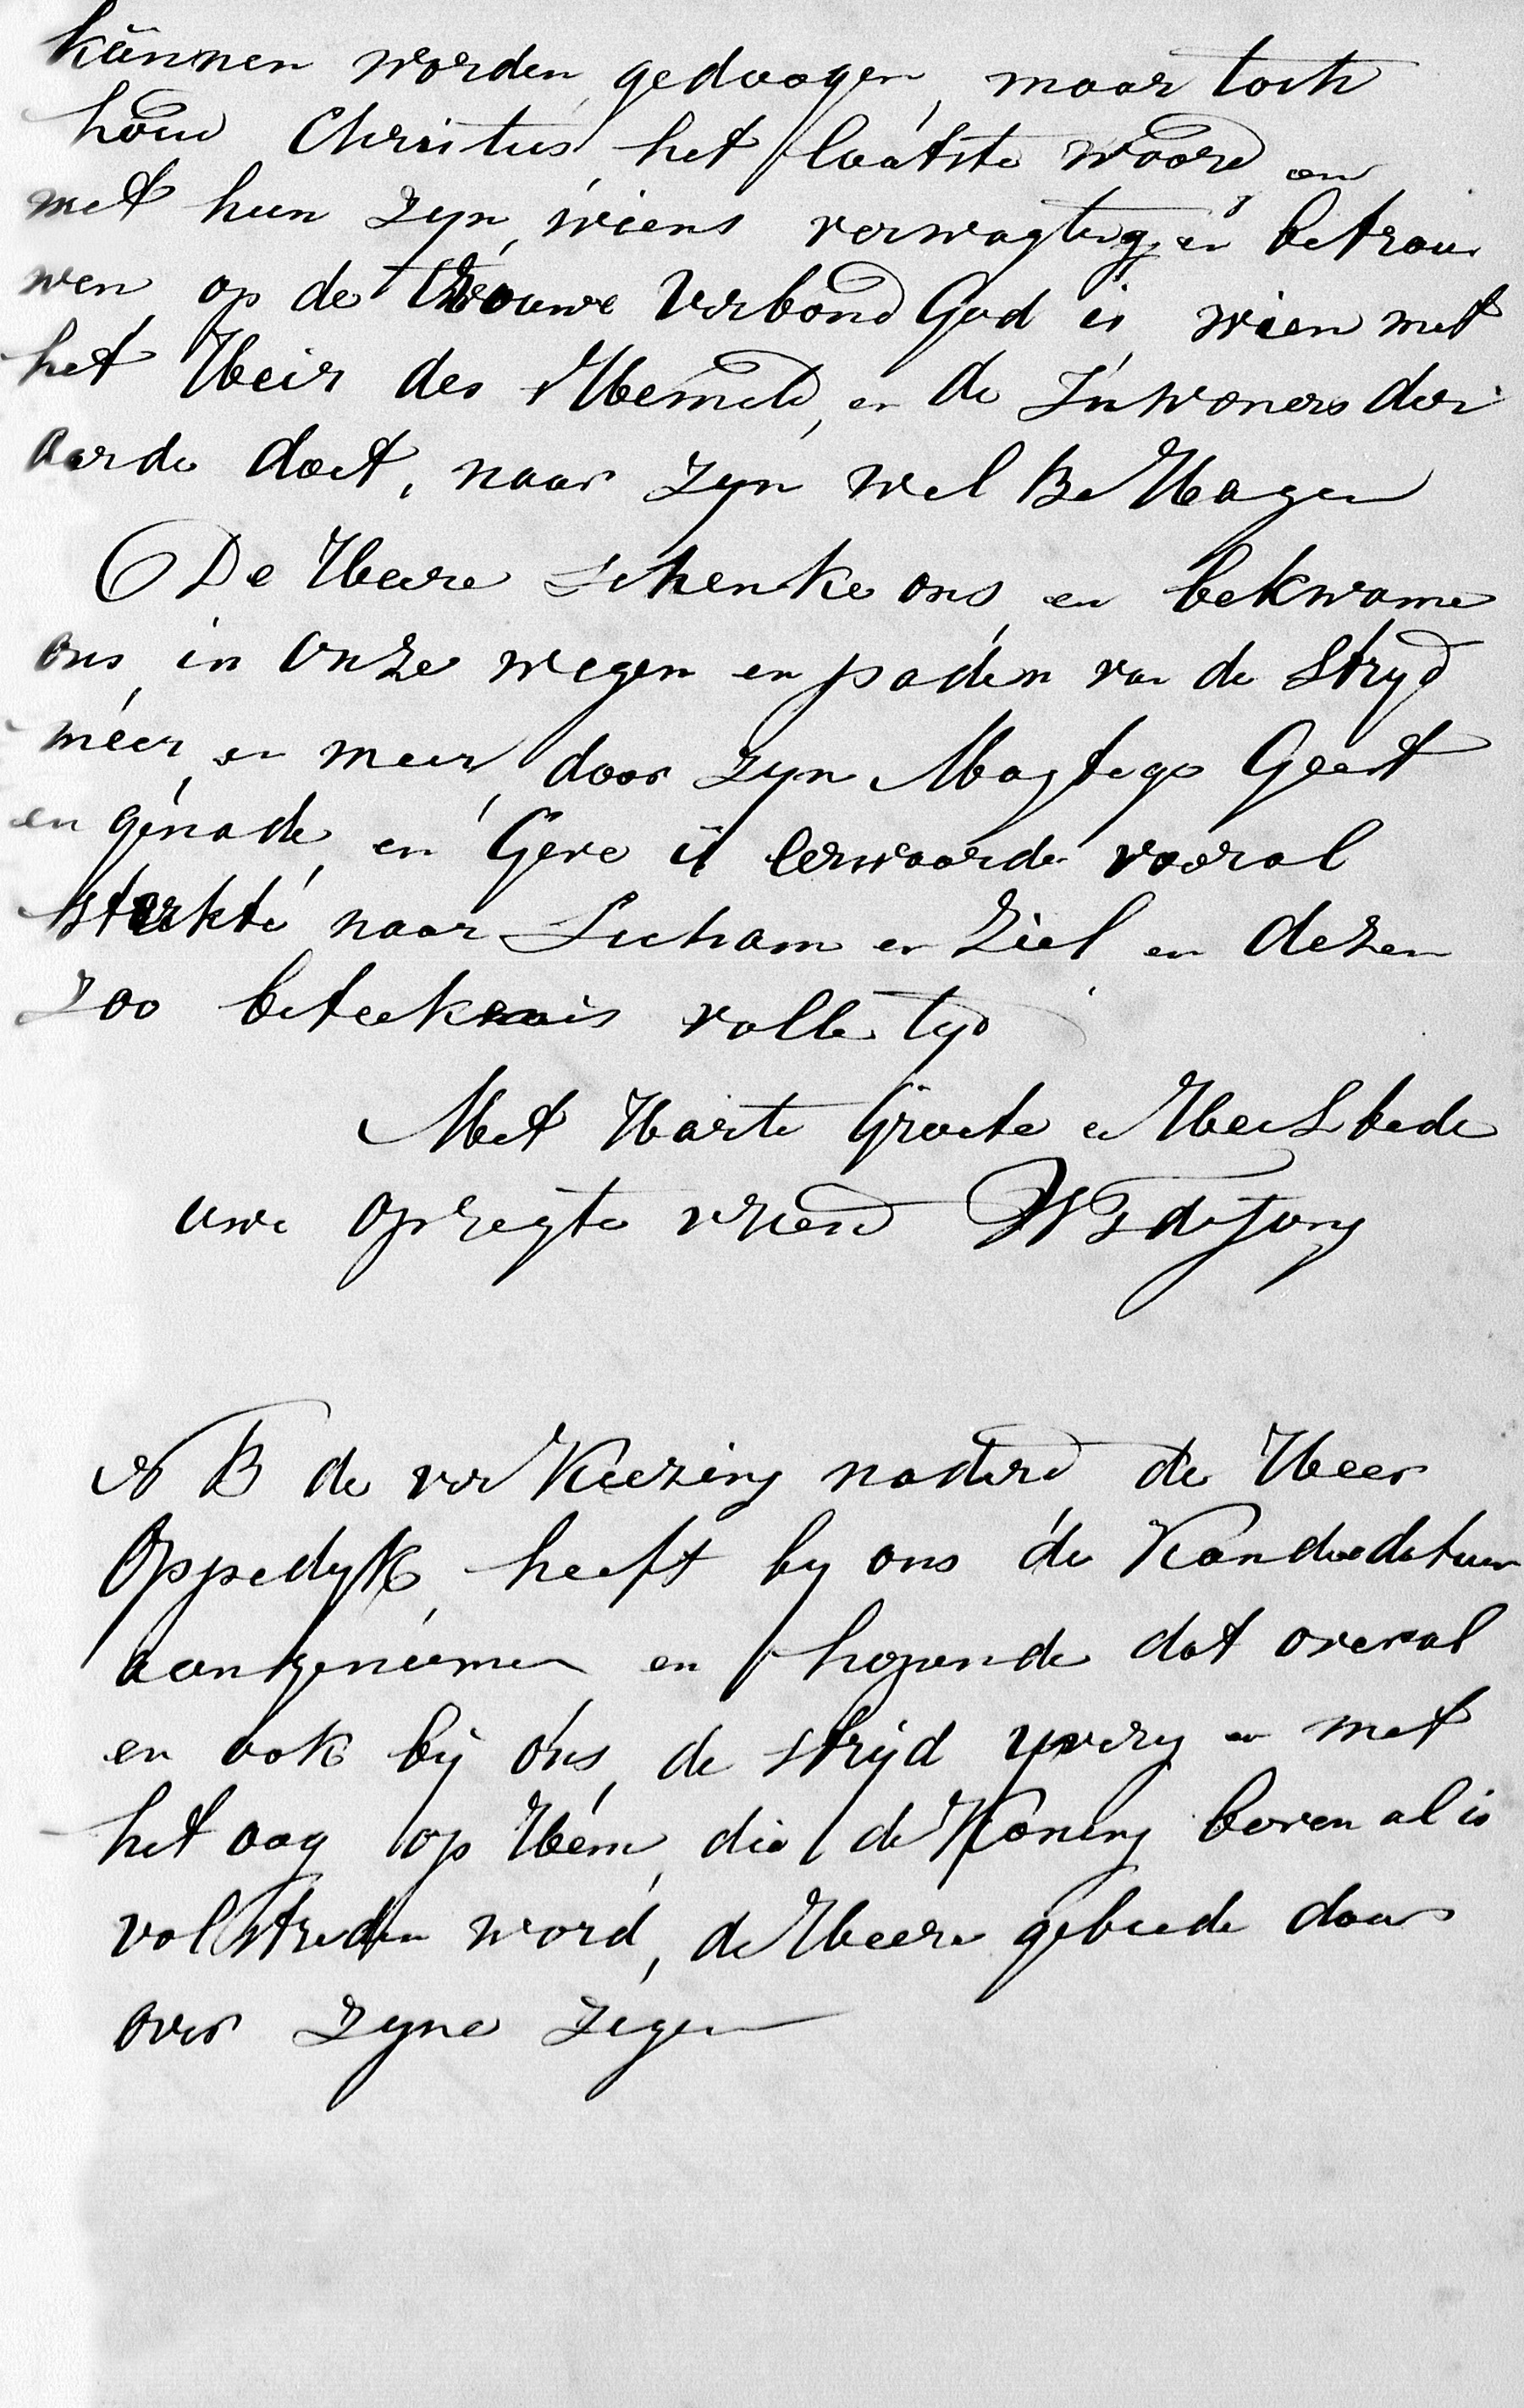 kunnen worden gedoogen, maar toch
houd Christus het laatste woord en
met hun zyn, wiens verwagting en betrou
wen op de trouwe Verbond God is, wien met
het Heir des Hemels, en de Inwoners der
aarde doet, naar zyn wel Be Hagen
De Heere schenke ons en bekwame
ons in onze wegen en paden van de stryd
meer en meer, door zyn Magtige Geest
en genade en Geve U Eerwaarde vooral
sterkte naar Licham en Ziel en dezen
zoo beteekenis volle tyd
Met Harte Groete en Heilbede
uwe opregte vriend W de Jong
N B de ver Kiezing naderd de Heer
Oppedyk heeft by ons de Kandidatuur
aangenomen en hopende dat overal
en ook bij ons de strijd yverig en met
het oog op Hem, die de Koning boven al is
volstreden word, de Heere gebiede daar
over Zyne Zegen